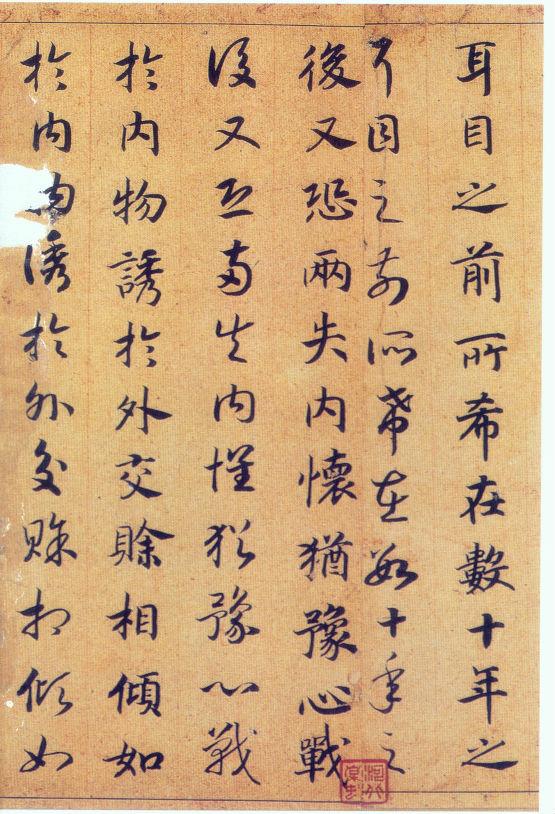 耳目之前所希在數十年之
耳目之前所希在數十年之
後又恐兩失內懷猶豫心戰
後又恐兩失內懷猶豫心戰
於內物誘於外交賒相傾如
於內物誘於外交賒相傾如